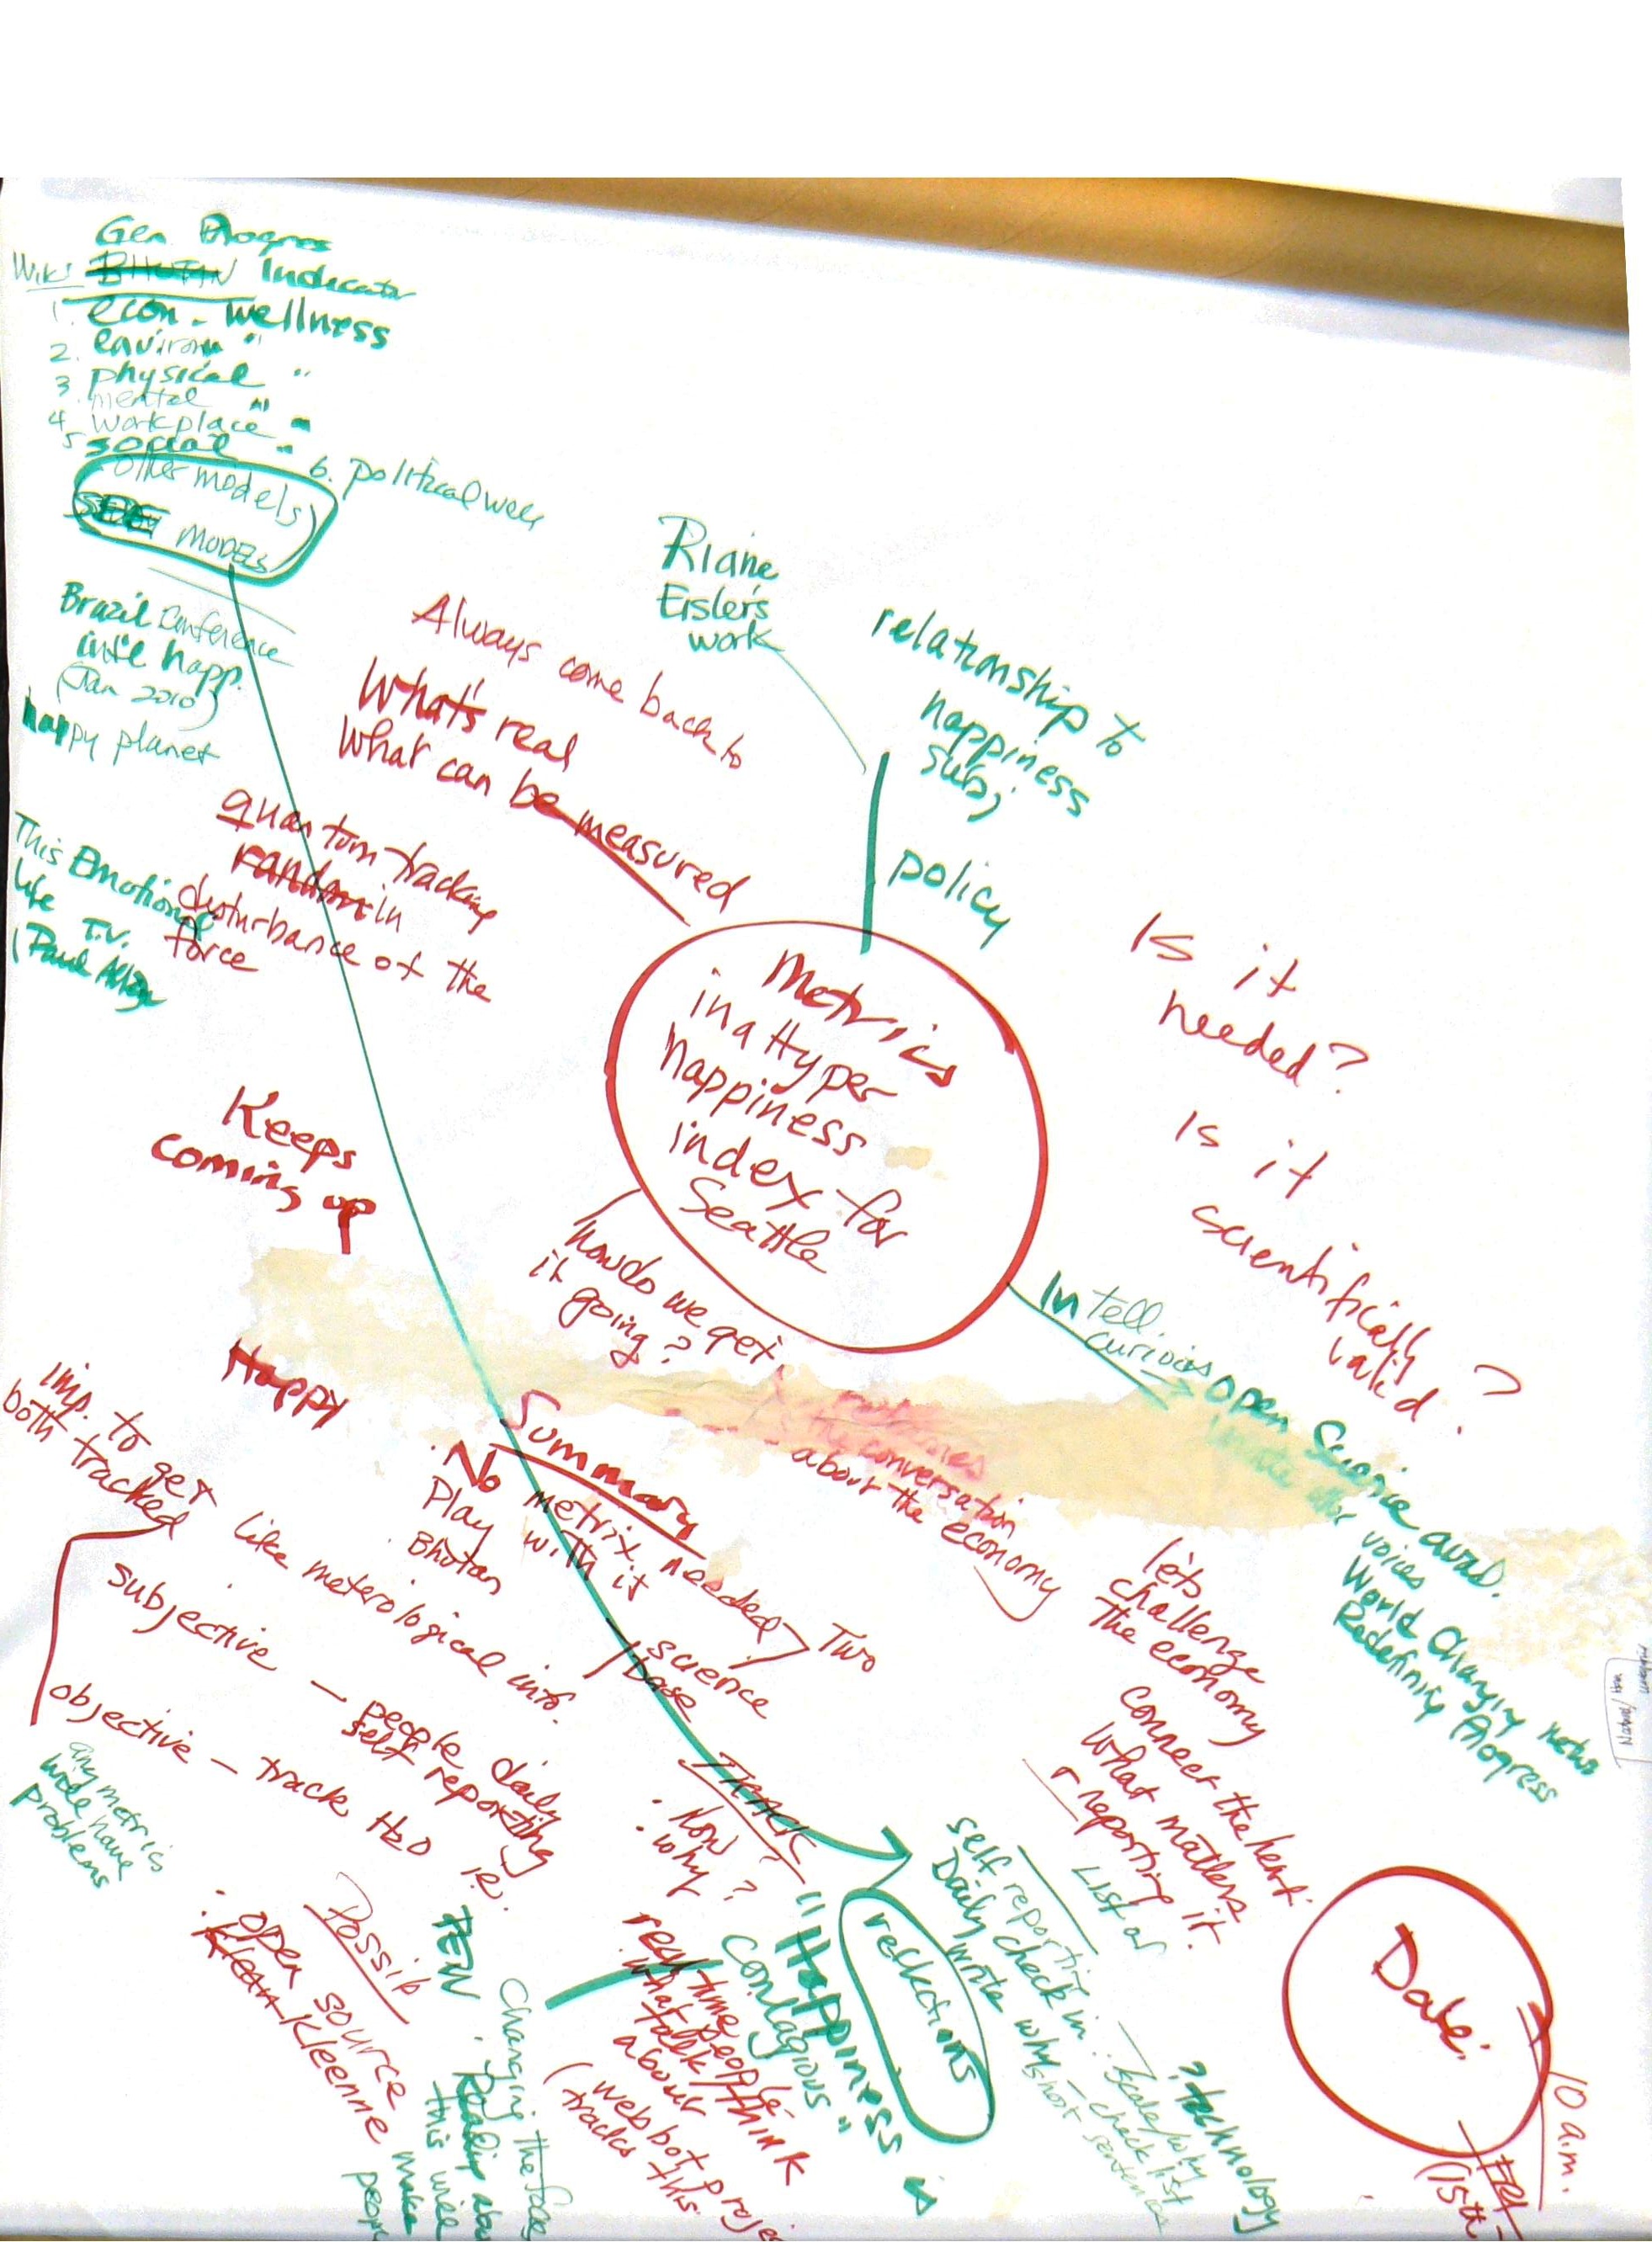 Gen Progres
Wiki Indicator
1. econ. wellness
2. environ "
3 physical "
mental "
4 workplace "
5 social "
6. political well
other models
MODELS
Brazil Conference
int'l happ.
(Jan 2010)
happy planet
This Emotional
life T.V.
(Paul Allen
Always come back to
What's real
What can be measured
quantum tracking
random in
disturbance of the
force
Riane
Eisler's
work
relationship to
happiness
subj
policy
Metrics
in a Hyper
happiness
index for
Seattle
Is it
needed?
Is it
scientifically
valid?
Keeps
coming up
Happy
how do we get
it going?
Intell.
curious
open Science avail.
voices
World Changing
Redefining Progress
the conversation
about the economy
Summary
. No metrix needed
Play with it
. Bhutan
Two
science
base
imp. to get
both tracked
like meterological info.
subjective — people daily
self reporting
objective — track H2O i.e.
any metrics
will have
problems
let's
challenge
The economy
connect the heart
What matters
reporting it.
TRACK
. How
. why?
"Happiness is
contagious"
reflections
self reporting
Daily check in
write why
List of
check list
? technology
Possib
. open source
Kleenne
PEN
Changing the face
this will
make
real time
. what people
talk/think
about
(web bot projec
tracks this
Date:
10 a.m.
(15th